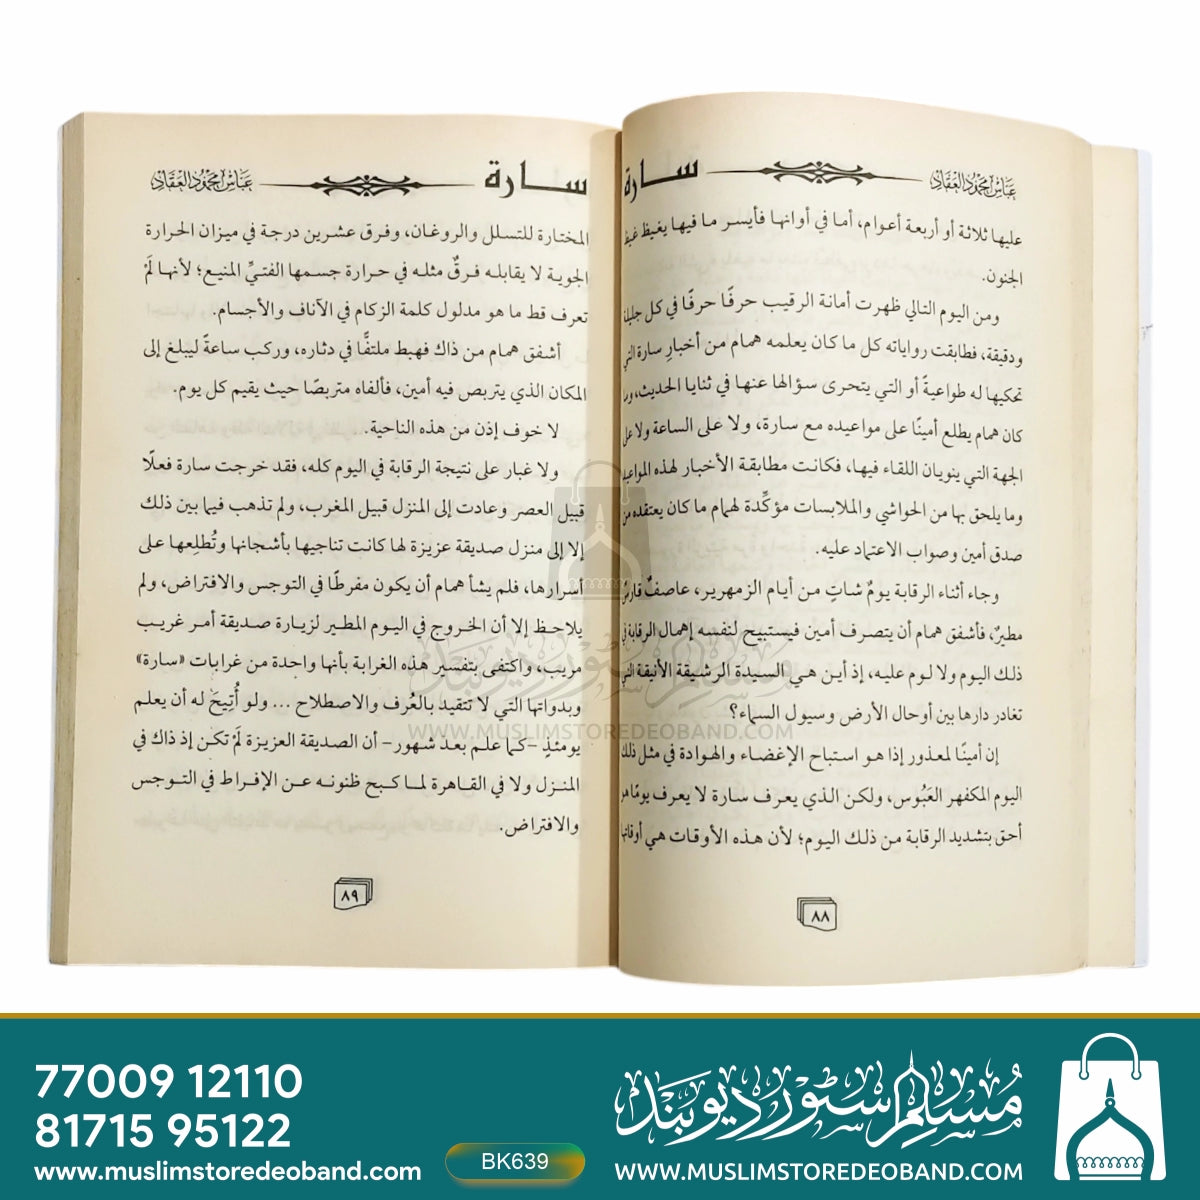 عباس محمود العقاد
سارة
عليها ثلاثة أو أربعة أعوام، أما في أوانها فأيسر ما فيها يغيظ غيظ
الجنون.
ومن اليوم التالي ظهرت أمانة الرقيب حرفًا حرفًا في كل جليلة
ودقيقة، فطابقت رواياته كل ما كان يعلمه همام من أخبار سارة التي
تحكيها له طواعيةً أو التي يتحرى سؤالها عنها في ثنايا الحديث، وما
كان همام يطلع أمينًا على مواعيده مع سارة، ولا على الساعة ولا على
الجهة التي ينويان اللقاء فيها، فكانت مطابقة الأخبار لهذه المواعيد
وما يلحق بها من الحواشي والملابسات مؤكِّدة لهمام ما كان يعتقده من
صدق أمين وصواب الاعتماد عليه.
وجاء أثناء الرقابة يومٌ شاتٍ من أيام الزمهرير، عاصفٌ قارسٌ
مطيرٌ، فأشفق همام أن يتصرف أمين فيستبيح لنفسه إهمال الرقابة في
ذلك اليوم ولا لوم عليه، إذ أين هي السيدة الرشيقة الأنيقة التي
تغادر دارها بين أوحال الأرض وسيول السماء؟
إن أمينًا لمعذور إذا هو استباح الإغضاء والهوادة في مثل ذلك
اليوم المكفهر العَبُوس، ولكن الذي يعرف سارة لا يعرف يومًا هو
أحق بتشديد الرقابة من ذلك اليوم؛ لأن هذه الأوقات هي أوقاتها
٨٨
سارة
عباس محمود العقاد
المختارة للتسلل والروغان، وفرق عشرين درجة في ميزان الحرارة
الجوية لا يقابله فرقٌ مثله في حرارة جسمها الفتيِّ المنيع؛ لأنها لَمْ
تعرف قط ما هو مدلول كلمة الزكام في الآناف والأجسام.
أشفق همام من ذاك فهبط ملتفًّا في دثاره، وركب ساعةً ليبلغ إلى
المكان الذي يتربص فيه أمين، فألفاه متربصًا حيث يقيم كل يوم.
لا خوف إذن من هذه الناحية.
ولا غبار على نتيجة الرقابة في اليوم كله، فقد خرجت سارة فعلًا
قبيل العصر وعادت إلى المنزل قبيل المغرب، ولم تذهب فيما بين ذلك
إلا إلى منزل صديقة عزيزة لها كانت تناجيها بأشجانها وتُطلعها على
أسرارها، فلم يشأ همام أن يكون مفرطًا في التوجس والافتراض، ولم
يلاحظ إلا أن الخروج في اليوم المطير لزيارة صديقة أمر غريب
مريب، واكتفى بتفسير هذه الغرابة بأنها واحدة من غرابات «سارة»
وبدواتها التي لا تتقيد بالعُرف والاصطلاح ... ولو أُتِيحَ له أن يعلم
يومئذٍ -كما علم بعد شهور- أن الصديقة العزيزة لَمْ تكن إذ ذاك في
المنزل ولا في القاهرة لما كبح ظنونه عن الإفراط في التوجس
والافتراض.
٨٩
مسلم ستور ديوبند
WWW.MUSLIMSTOREDEOBAND.COM
77009 12110
81715 95122
www.muslimstoredeoband.com
BK639
مسلم ستور ديوبند
WWW.MUSLIMSTOREDEOBAND.COM